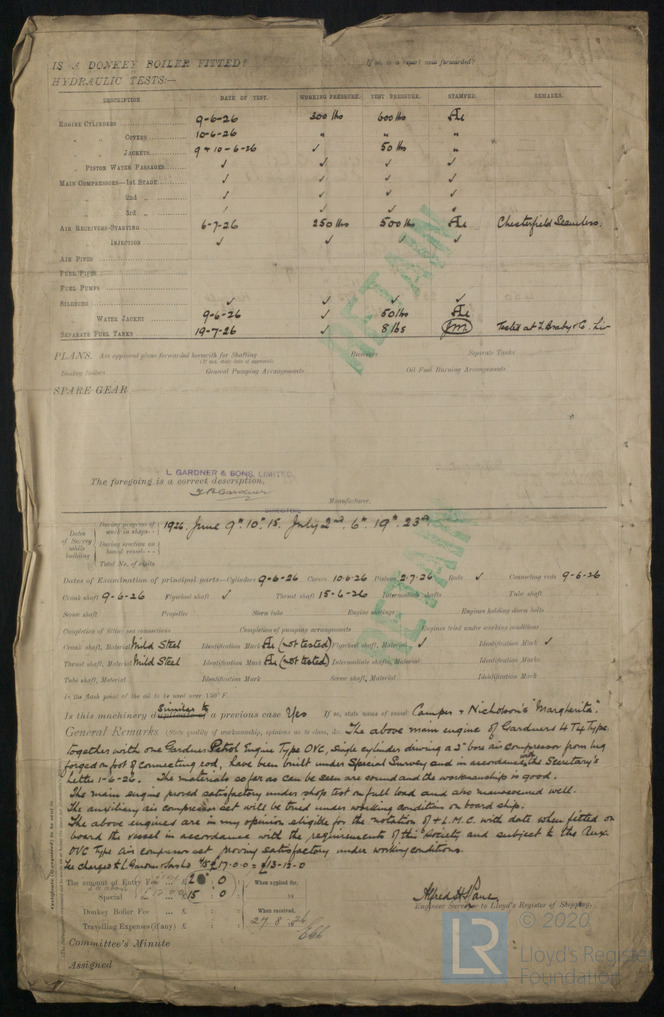 IS A DONKEY BOILER FITTED? If so, is a report now forwarded?
HYDRAULIC TESTS:—
DESCRIPTION DATE OF TEST. WORKING PRESSURE. TEST PRESSURE. STAMPED. REMARKS.
ENGINE CYLINDERS 9-6-26 300 lbs 600 lbs
" " COVERS 10-6-26 " " "
" " JACKETS 9 & 10-6-26 ✓ 50 lbs "
" PISTON WATER PASSAGES ✓ ✓ ✓ ✓
MAIN COMPRESSORS—1st STAGE ✓ ✓ ✓ ✓
" 2nd " ✓ ✓ ✓ ✓
" 3rd " ✓ ✓ ✓ ✓
AIR RECEIVERS—STARTING 6-7-26 250 lbs 500 lbs Chesterfield Seamless.
INJECTION ✓ ✓ ✓ ✓
AIR PIPES
FUEL PIPES
FUEL PUMPS
SILENCER ✓ ✓ ✓ ✓
" WATER JACKET 9-6-26 ✓ 50 lbs
SEPARATE FUEL TANKS 19-7-26 ✓ 8 lbs Tested at F. Braby & Co. Liv
RETAIN
PLANS. Are approved plans forwarded herewith for Shafting Receivers Separate Tanks
(If not, state date of approval)
Donkey Boilers General Pumping Arrangements Oil Fuel Burning Arrangements
SPARE GEAR
L. GARDNER & SONS, LIMITED.
The foregoing is a correct description,
Gardner
DIRECTOR Manufacturer.
Dates of Survey while building
During progress of work in shops - - 1926. June 9th. 10th. 15. July 2nd. 6th. 19th. 23rd.
During erection on board vessel - - -
Total No. of visits
RETAIN
Dates of Examination of principal parts—Cylinders 9-6-26 Covers 10-6-26 Pistons 2-7-26 Rods ✓ Connecting rods 9-6-26
Crank shaft 9-6-26 Flywheel shaft ✓ Thrust shaft 15-6-26 Intermediate shafts Tube shaft
Screw shaft Propeller Stern tube Engine seatings Engines holding down bolts
Completion of fitting sea connections Completion of pumping arrangements Engines tried under working conditions
Crank shaft, Material Mild Steel Identification Mark (not tested) Flywheel shaft, Material ✓ Identification Mark ✓
Thrust shaft, Material Mild Steel Identification Mark (not tested) Intermediate shafts, Material Identification Marks
Tube shaft, Material Identification Mark Screw shaft, Material Identification Mark
Is the flash point of the oil to be used over 150° F.
Is this machinery duplicate of Similar to a previous case Yes If so, state name of vessel Camper & Nicholson's "Margherita".
General Remarks (State quality of workmanship, opinions as to class, &c. The above main engine of Gardners 4T4 Type
together with one Gardner Petrol Engine Type OVC, single cylinder driving a 2" bore air compressor from big
forged on foot of connecting rod, have been built under Special Survey and in accordance with the Secretary's
letter 1-6-26. The materials so far as can be seen are sound and the workmanship is good.
The main engine proved satisfactory under shop test on full load and also manoeuvred well.
The auxiliary air compressor set will be tried under working condition on board ship.
The above engines are in my opinion eligible for the notation of + L.M.C. with date when fitted on
board the vessel in accordance with the requirements of this Society and subject to the Aux.
OVC Type Air compressor set proving satisfactory under working conditions.
Fee charged to L. Gardner & Sons Ltd
The amount of Entry Fee ... £ 2 : 0 When applied for,
Special ... £ 15 : 0
Donkey Boiler Fee ... £ When received,
Travelling Expenses (if any) £ 27.8.26
Engineer Surveyor to Lloyd's Register of Shipping.
Committee's Minute
Assigned
© 2020
LR
Lloyd's Register
Foundation